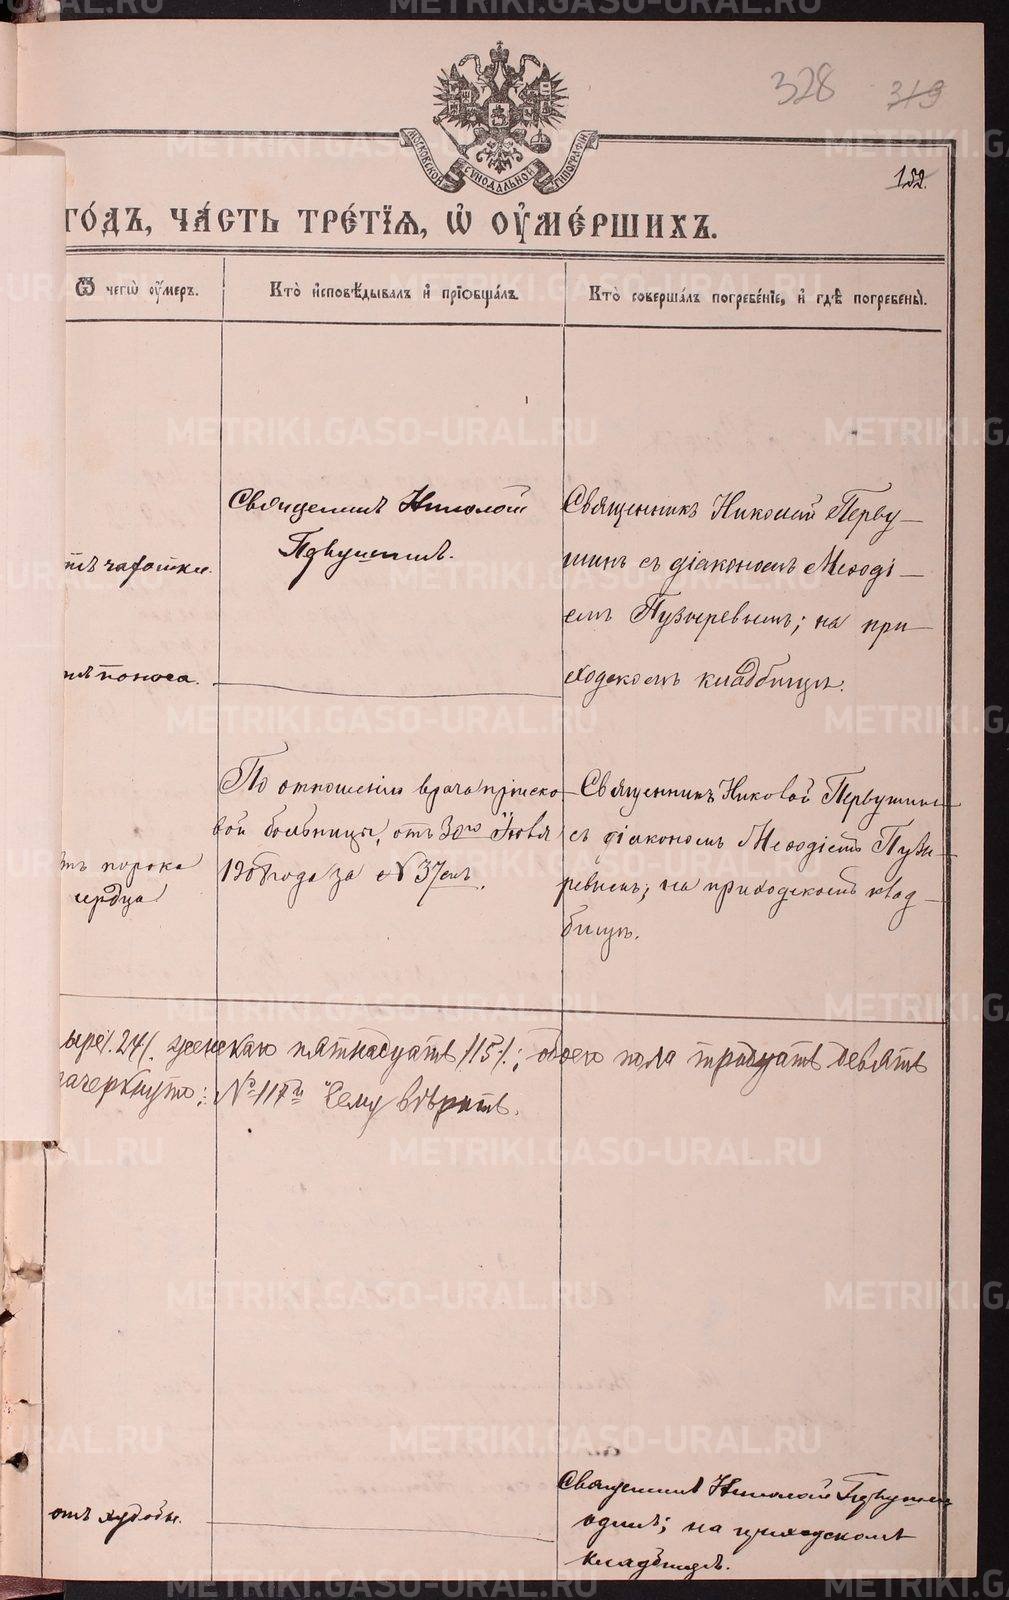 328 313
152.
МОСКОВСКОЙ СѴНОДАЛЬНОЙ ТИПОГРАФІИ
ГО́ДЪ, ЧА́СТЬ ТРЕ́ТІѦ, Ѡ҆ ОУ҆МЕ́РШИХЪ.
Ѿ чегѡ̀ оу҆́меръ.
Кто̀ и҆сповѣ́дывалъ и҆ прїѡбща́лъ.
Кто̀ соверша́лъ погребе́нїе, и҆ гдѣ̀ погребены̀.
Священникъ Николай
Первушинъ.
тъ чахотки.
Священникъ Николай Перву-
шинъ съ діакономъ Меѳоді-
емъ Пузыревымъ; на при-
ходскомъ кладбищѣ.
поноса.
По отношенію врача пріиско-
вой больницы, отъ 30го Іюля
1908 года за № 37емъ.
тъ порока
сердца
Священникъ Николай Первушинъ
съ діакономъ Меѳодіемъ Пузы-
ревымъ; на приходскомъ клад-
бищѣ.
ыре/.24/. женскаго пятнадцать /15/.; обоего пола тридцать девять
зачеркнуто: № 11й Чему вѣрить.
отъ худобы.
Священникъ Николай Первушинъ
одинъ; на приходскомъ
кладбищѣ.
METRIKI.GASO-URAL.RU